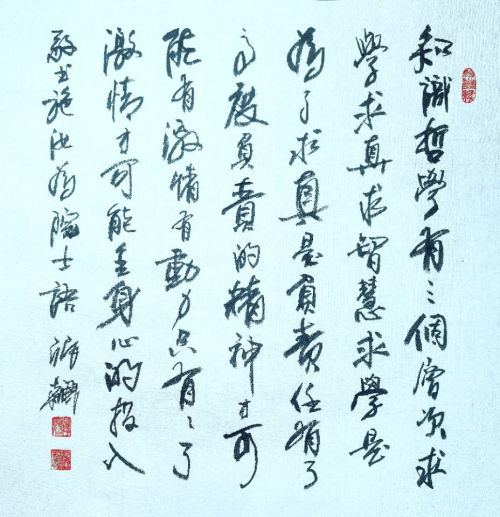 知識哲學有三個層次求
學求真求智慧求學是
為了求真是負責任有了
高度負責的精神才可
能有激情有動力只有〻了
激情才可能全身心的投入
敬书施為院士語